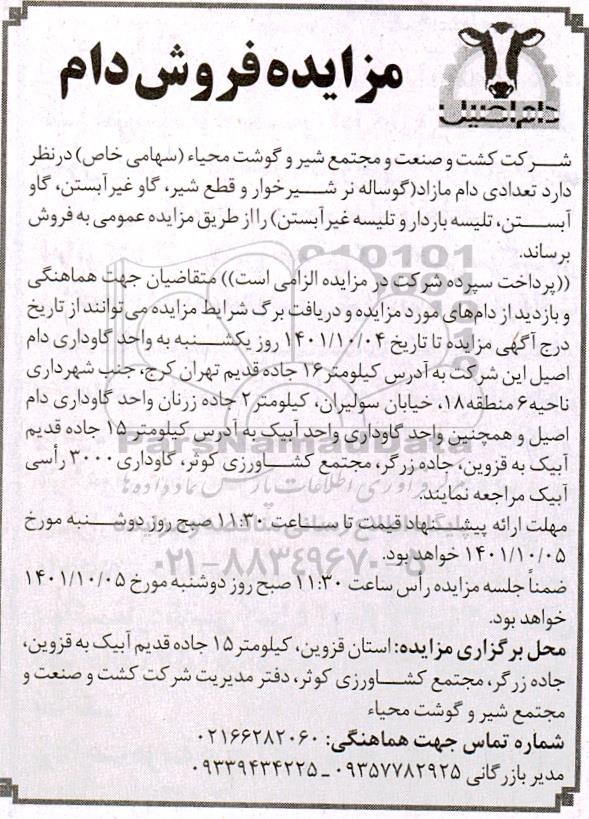 مزایده فروش دام
دام اصیل
شرکت کشت و صنعت و مجتمع شیر و گوشت محیاء (سهامی خاص) در نظر
دارد تعدادی دام مازاد(گوساله نر شیرخوار و قطع شیر، گاو غیرآبستن، گاو
آبستن، تلیسه باردار و تلیسه غیرآبستن) را از طریق مزایده عمومی به فروش
برساند.
((پرداخت سپرده شرکت در مزایده الزامی است)) متقاضیان جهت هماهنگی
و بازدید از دام‌های مورد مزایده و دریافت برگ شرایط مزایده می‌توانند از تاریخ
درج آگهی مزایده تا تاریخ ۱۴۰۱/۱۰/۰۴ روز یکشنبه به واحد گاوداری دام
اصیل این شرکت به آدرس کیلومتر ۱۶ جاده قدیم تهران کرج، جنب شهرداری
ناحیه ۶ منطقه ۱۸، خیابان سولیران، کیلومتر ۲ جاده زرنان واحد گاوداری دام
اصیل و همچنین واحد گاوداری واحد آبیک به آدرس کیلومتر ۱۵ جاده قدیم
آبیک به قزوین، جاده زرگر، مجتمع کشاورزی کوثر، گاوداری ۳۰۰۰ رأسی
آبیک مراجعه نمایند.
مهلت ارائه پیشنهاد قیمت تا ساعت ۱۱:۳۰ صبح روز دوشنبه مورخ
۱۴۰۱/۱۰/۰۵ خواهد بود.
ضمناً جلسه مزایده رأس ساعت ۱۱:۳۰ صبح روز دوشنبه مورخ ۱۴۰۱/۱۰/۰۵
خواهد بود.
محل برگزاری مزایده: استان قزوین، کیلومتر ۱۵ جاده قدیم آبیک به قزوین،
جاده زرگر، مجتمع کشاورزی کوثر، دفتر مدیریت شرکت کشت و صنعت و
مجتمع شیر و گوشت محیاء
شماره تماس جهت هماهنگی: ۰۲۱۶۶۲۸۲۰۶۰
مدیر بازرگانی ۰۹۳۵۷۷۸۲۹۲۵ ـ ۰۹۳۳۹۴۳۴۲۲۵
ParsNamadData
۰۲۱-۸۸۳۴۹۶۷۰-۵